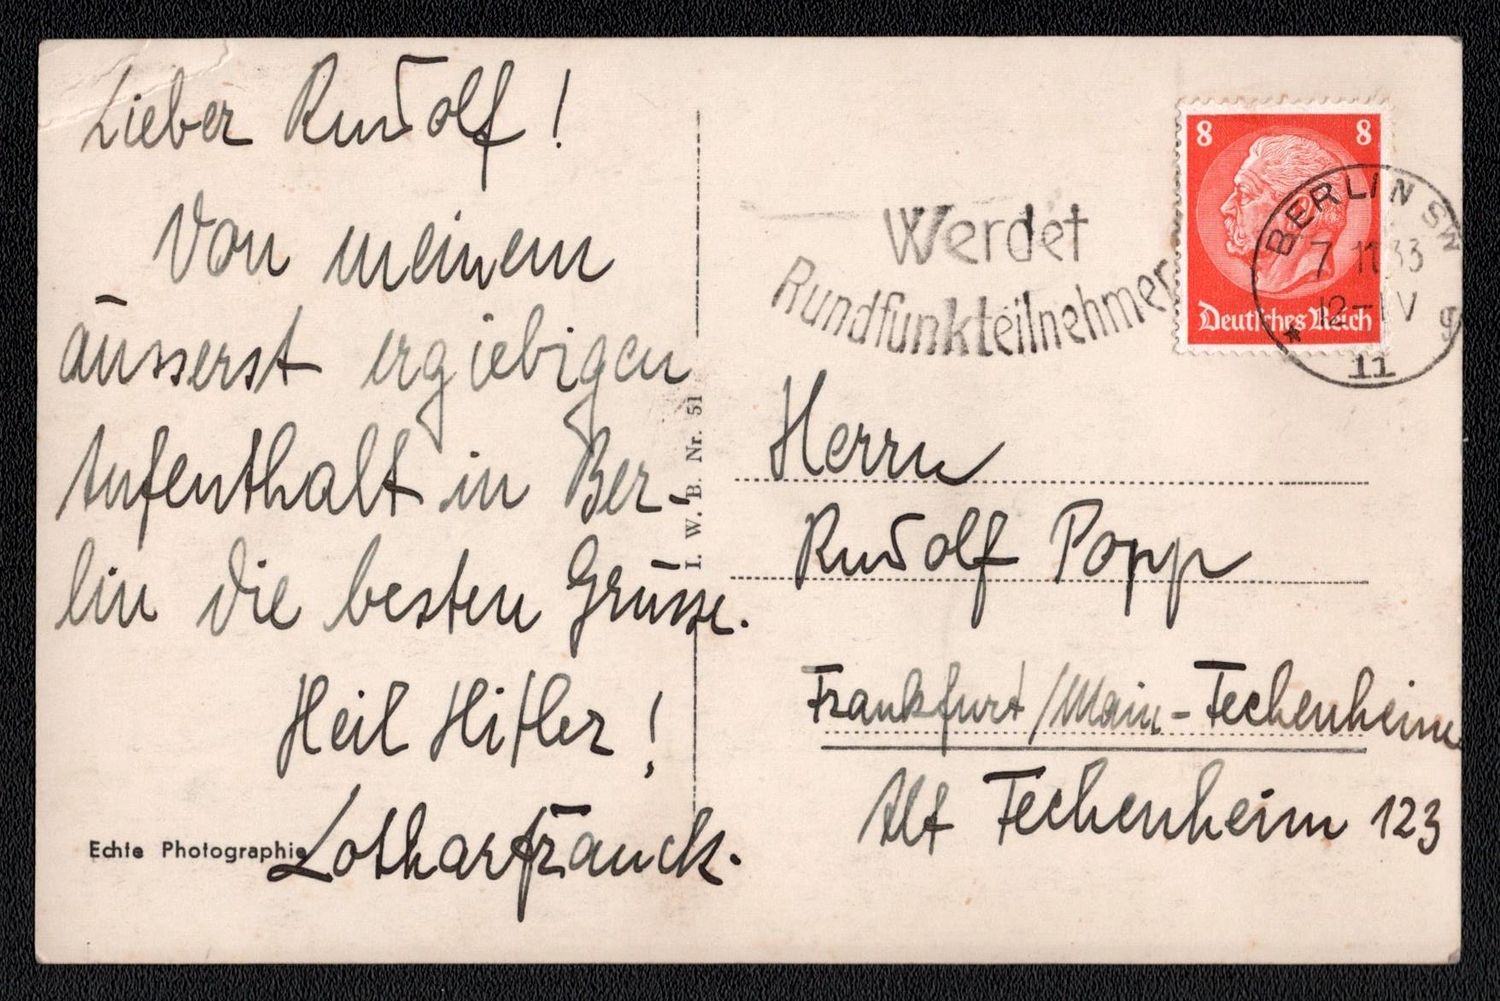 Lieber Rudolf!
Von meinem
äusserst ergiebigen
Aufenthalt in Ber-
lin die besten Grüsse.
Heil Hitler!
Lothar Franck.
Echte Photographie
I. W. B. Nr. 51
Werdet
Rundfunkteilnehmer
8 8
Deutsches Reich
BERLIN SW
7 11 33
12-1V
* 11 g
Herrn
Rudolf Popp
Frankfurt/Main-Fechenheim
Alt Fechenheim 123